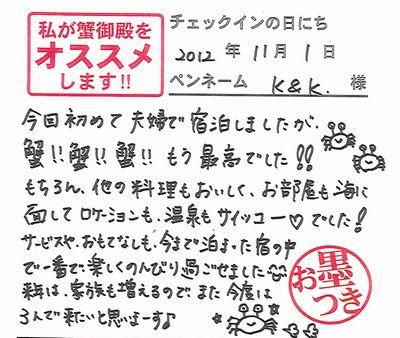 私が蟹御殿を
オススメ
します!!
チェックインの日にち
2012 年 11 月 1 日
ペンネーム K&K. 様
今回初めて夫婦で宿泊しましたが、
蟹!! 蟹!! 蟹!! もう最高でした!!
もちろん、他の料理もおいしく、お部屋も海に
面してロケーションも、温泉もサイッコー♡でした!
サービスや、おもてなしも、今まで泊まった宿の中
で一番で、楽しくのんびり過ごせました
来年は、家族も増えるので、また今度は
3人で来たいと思いまーす♪
お墨つき